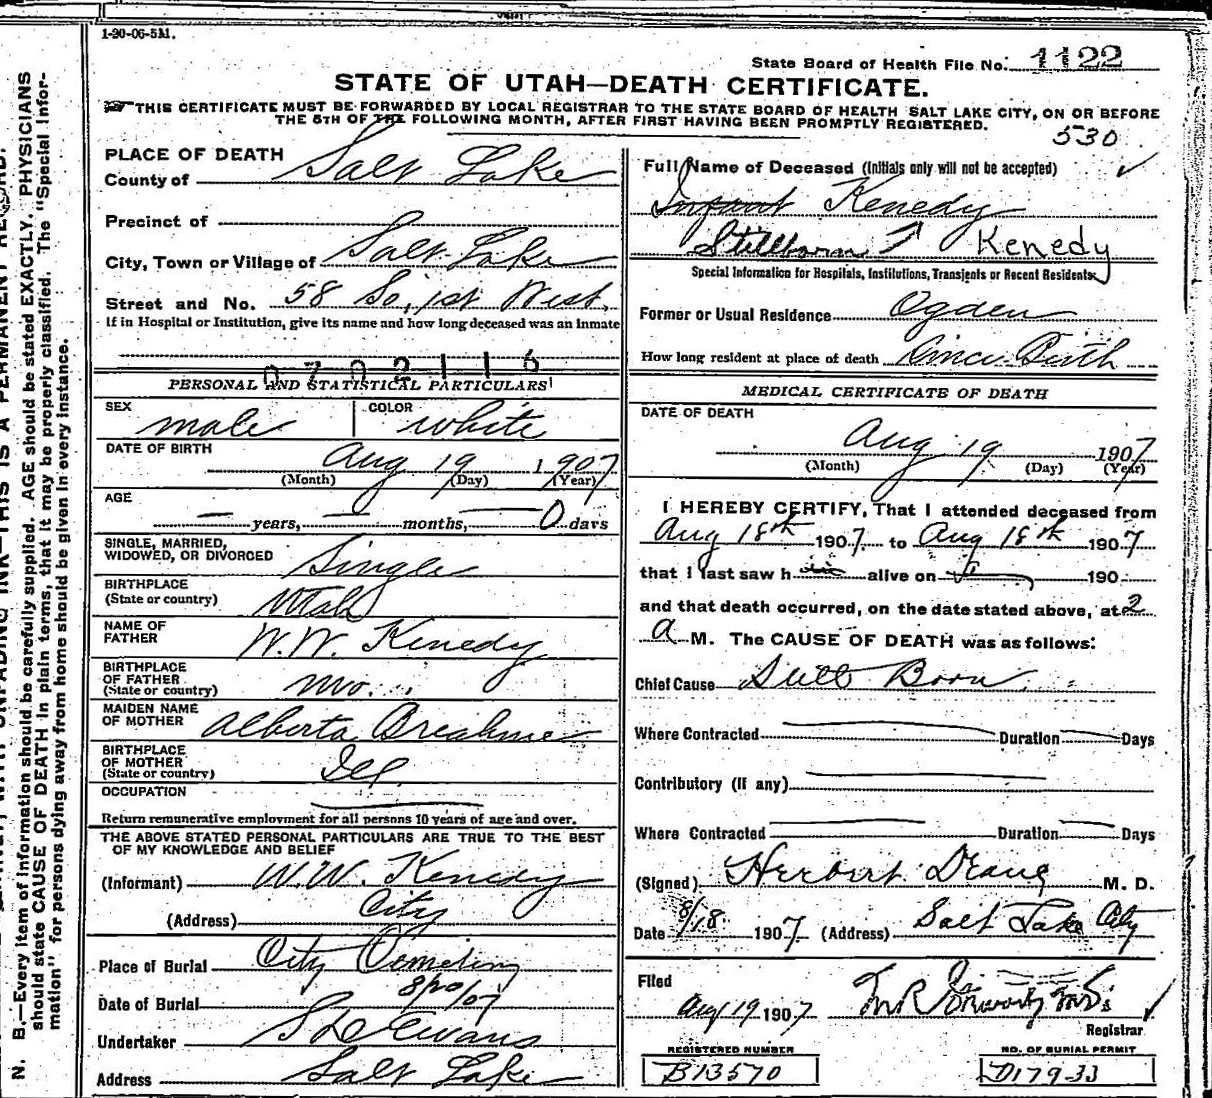 1-20-06-5M.
State Board of Health File No. 1122
STATE OF UTAH—DEATH CERTIFICATE.
THIS CERTIFICATE MUST BE FORWARDED BY LOCAL REGISTRAR TO THE STATE BOARD OF HEALTH SALT LAKE CITY, ON OR BEFORE
THE 5TH OF THE FOLLOWING MONTH, AFTER FIRST HAVING BEEN PROMPTLY REGISTERED.
530
PLACE OF DEATH
County of Salt Lake
Precinct of
City, Town or Village of Salt Lake
Street and No. 58 So. 1st West.
If in Hospital or Institution, give its name and how long deceased was an inmate
0702116
PERSONAL AND STATISTICAL PARTICULARS
SEX male COLOR white
DATE OF BIRTH Aug 19 1907
(Month) (Day) (Year)
AGE
— years, — months, — 0 days
SINGLE, MARRIED,
WIDOWED, OR DIVORCED Single
BIRTHPLACE
(State or country) Utah
NAME OF
FATHER W.W. Kenedy
BIRTHPLACE
OF FATHER
(State or country) Mo.
MAIDEN NAME
OF MOTHER Alberta
BIRTHPLACE
OF MOTHER
(State or country)
OCCUPATION
Return remunerative employment for all persons 10 years of age and over.
THE ABOVE STATED PERSONAL PARTICULARS ARE TRUE TO THE BEST
OF MY KNOWLEDGE AND BELIEF
(Informant) W.W. Kenedy
(Address) City
Place of Burial City Cemetery
Date of Burial 8/20/07
Undertaker Evans
Address Salt Lake
Full Name of Deceased (Initials only will not be accepted)
Infant Kenedy
Stillborn Kenedy
Special Information for Hospitals, Institutions, Transients or Recent Residents
Former or Usual Residence Ogden
How long resident at place of death Since Birth
MEDICAL CERTIFICATE OF DEATH
DATE OF DEATH
Aug 19 1907
(Month) (Day) (Year)
I HEREBY CERTIFY, That I attended deceased from
Aug 18th 1907 to Aug 18th 1907
that I last saw him alive on 190
and that death occurred, on the date stated above, at 2
a M. The CAUSE OF DEATH was as follows:
Chief Cause Still Born
Where Contracted Duration Days
Contributory (if any)
Where Contracted Duration Days
(Signed) Herbert M. D.
Date 8/18 1907 (Address) Salt Lake City
Filed
Aug 19 1907
Registrar
REGISTERED NUMBER NO. OF BURIAL PERMIT
B13570 D17933
N. B.—Every item of information should be carefully supplied. AGE should be stated EXACTLY. PHYSICIANS
should state CAUSE OF DEATH in plain terms, that it may be properly classified. The "Special Infor-
mation" for persons dying away from home should be given in every instance.